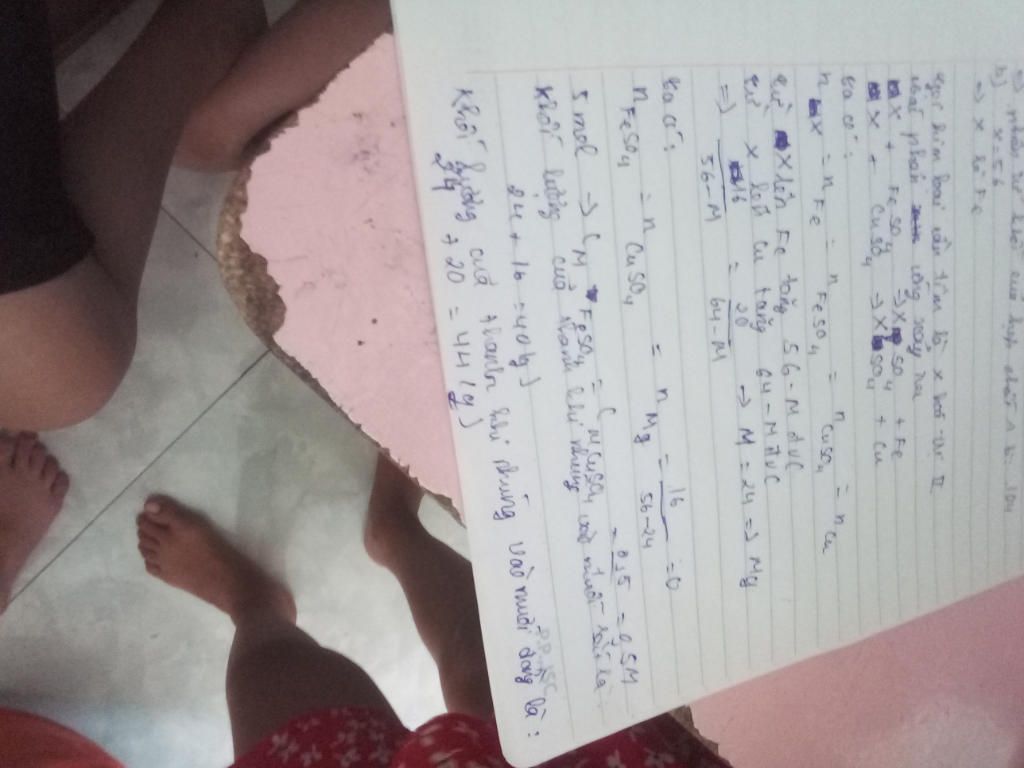 b) x = 56
=> x là Fe
Gọi kim loại cần tìm là x hoá trị II
các phản ứng xảy ra
x + FeSO4 → xSO4 + Fe
x + CuSO4 → xSO4 + Cu
ta có:
n x = n Fe = n FeSO4 = n CuSO4 = n Cu
cứ x lên Fe tăng 56 - M đVC
cứ x lên Cu tăng 64 - M đVC
=> 16/56-M = 20/64-M → M = 24 => Mg
ta có:
n FeSO4 = n CuSO4 = n Mg = 16/56-24 = 0
5 mol → CM FeSO4 = CM CuSO4 = 0,5 = 0,5M
khối lượng của thanh khi nhúng vào muối sắt là
24 + 16 = 40(g)
khối lượng của thanh khi nhúng vào muối đồng là:
24 + 20 = 44(g)